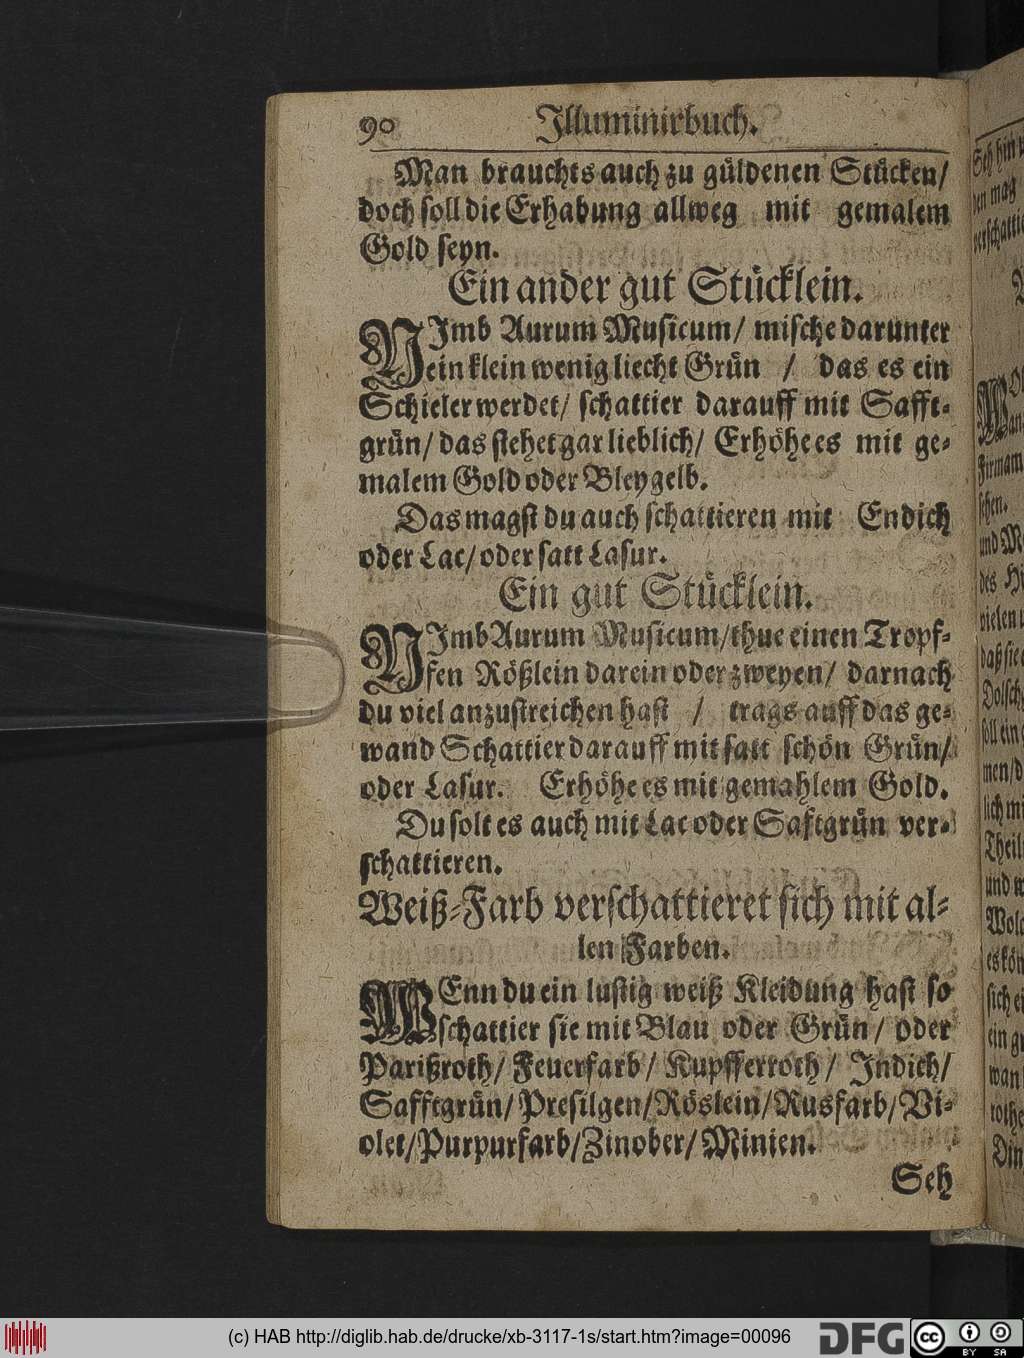 90 Illuminirbuch.
Man brauchts auch zu güldenen Stücken/
doch soll die Erhabung allweg mit gemalem
Gold seyn.
Ein ander gut Stücklein.
NImb Aurum Musicum/ mische darunter
ein klein wenig liecht Grün / das es ein
Schieler werdet/ schattier darauff mit Safft-
grün/ das stehet gar lieblich/ Erhöhe es mit ge-
malem Gold oder Bleygelb.
Das magst du auch schattieren mit Endich
oder Lac/ oder satt Lasur.
Ein gut Stücklein.
NImb Aurum Musicum/ thue einen Tropf-
fen Rößlein darein oder zweyen/ darnach
du viel anzustreichen hast / trags auff das ge-
wand Schattier darauff mit satt schön Grün/
oder Lasur. Erhöhe es mit gemahlem Gold.
Du solt es auch mit Lac oder Saftgrün ver-
schattieren.
Weiß-Farb verschattieret sich mit al-
len Farben.
WEnn du ein lustig weiß Kleidung hast so
schattier sie mit Blau oder Grün/ oder
Parißroth/ Feuerfarb/ Kupfferroth/ Indich/
Safftgrün/ Presilgen/ Röslein/ Rusfarb/ Vi-
olet/ Purpurfarb/ Zinober/ Minien.
Seh
(c) HAB http://diglib.hab.de/drucke/xb-3117-1s/start.htm?image=00096
DFG
cc
BY SA